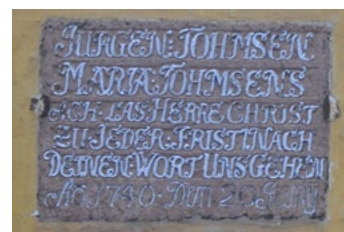 JÜRGEN: TOHMSEN
MARIA TOHMSENS
ACH LAS HERRE CHRIST
ZU JEDER FRIST NACH
DEINEN WORT UNS GEHEN
Ao 1740 Den 20 Juny